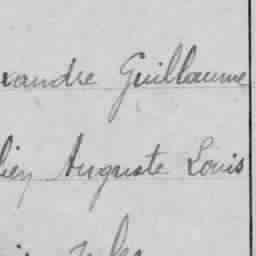 xandre Guillaume
lien Auguste Louis